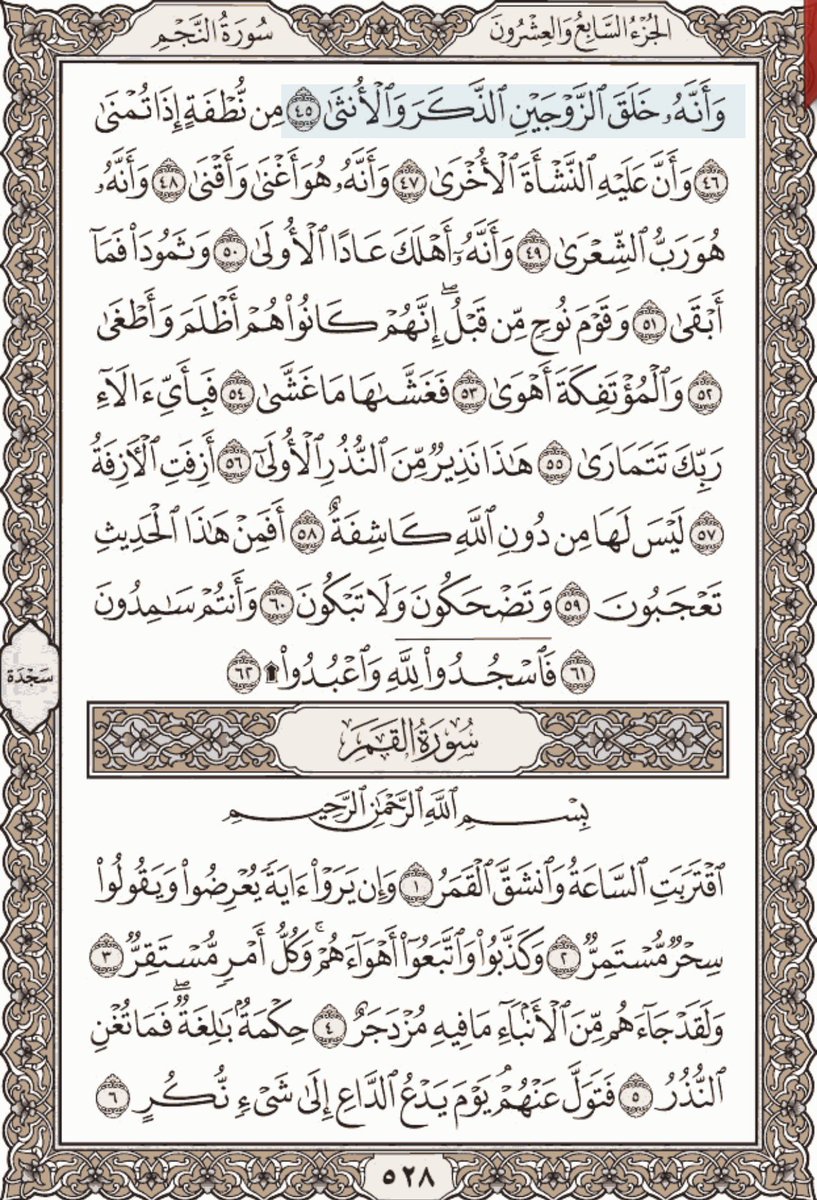 الجُزْءُ السَّابِعُ وَالعِشْرُونَ
سُورَةُ النَّجْمِ
وَأَنَّهُۥ خَلَقَ ٱلزَّوْجَيْنِ ٱلذَّكَرَ وَٱلْأُنثَىٰ ٤٥ مِن نُّطْفَةٍ إِذَا تُمْنَىٰ
٤٦ وَأَنَّ عَلَيْهِ ٱلنَّشْأَةَ ٱلْأُخْرَىٰ ٤٧ وَأَنَّهُۥ هُوَ أَغْنَىٰ وَأَقْنَىٰ ٤٨ وَأَنَّهُۥ
هُوَ رَبُّ ٱلشِّعْرَىٰ ٤٩ وَأَنَّهُۥٓ أَهْلَكَ عَادًا ٱلْأُولَىٰ ٥٠ وَثَمُودَا۟ فَمَآ
أَبْقَىٰ ٥١ وَقَوْمَ نُوحٍ مِّن قَبْلُ ۖ إِنَّهُمْ كَانُوا۟ هُمْ أَظْلَمَ وَأَطْغَىٰ
٥٢ وَٱلْمُؤْتَفِكَةَ أَهْوَىٰ ٥٣ فَغَشَّىٰهَا مَا غَشَّىٰ ٥٤ فَبِأَىِّ ءَالَآءِ
رَبِّكَ تَتَمَارَىٰ ٥٥ هَٰذَا نَذِيرٌ مِّنَ ٱلنُّذُرِ ٱلْأُولَىٰٓ ٥٦ أَزِفَتِ ٱلْأَزِفَةُ
٥٧ لَيْسَ لَهَا مِن دُونِ ٱللَّهِ كَاشِفَةٌ ٥٨ أَفَمِنْ هَٰذَا ٱلْحَدِيثِ
تَعْجَبُونَ ٥٩ وَتَضْحَكُونَ وَلَا تَبْكُونَ ٦٠ وَأَنتُمْ سَٰمِدُونَ
٦١ فَٱسْجُدُوا۟ لِلَّهِ وَٱعْبُدُوا۟ ۩ ٦٢
سَجْدَة
سُورَةُ القَمَرِ
بِسْمِ ٱللَّهِ ٱلرَّحْمَٰنِ ٱلرَّحِيمِ
ٱقْتَرَبَتِ ٱلسَّاعَةُ وَٱنشَقَّ ٱلْقَمَرُ ١ وَإِن يَرَوْا۟ ءَايَةً يُعْرِضُوا۟ وَيَقُولُوا۟
سِحْرٌ مُّسْتَمِرٌّ ٢ وَكَذَّبُوا۟ وَٱتَّبَعُوٓا۟ أَهْوَآءَهُمْ ۚ وَكُلُّ أَمْرٍ مُّسْتَقِرٌّ ٣
وَلَقَدْ جَآءَهُم مِّنَ ٱلْأَنۢبَآءِ مَا فِيهِ مُزْدَجَرٌ ٤ حِكْمَةٌۢ بَٰلِغَةٌ ۖ فَمَا تُغْنِ
ٱلنُّذُرُ ٥ فَتَوَلَّ عَنْهُمْ ۘ يَوْمَ يَدْعُ ٱلدَّاعِ إِلَىٰ شَىْءٍ نُّكُرٍ ٦
٥٢٨